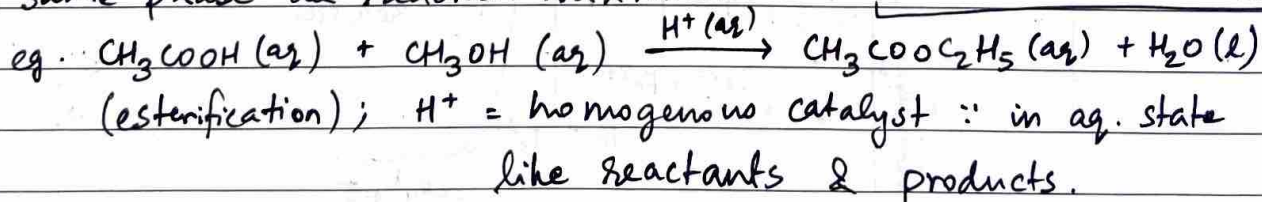 eg. CH₃COOH (aq) + CH₃OH (aq) —H⁺(aq)→ CH₃COOC₂H₅ (aq) + H₂O (l)
(esterification); H⁺ = homogenous catalyst ∵ in aq. state
like reactants & products.